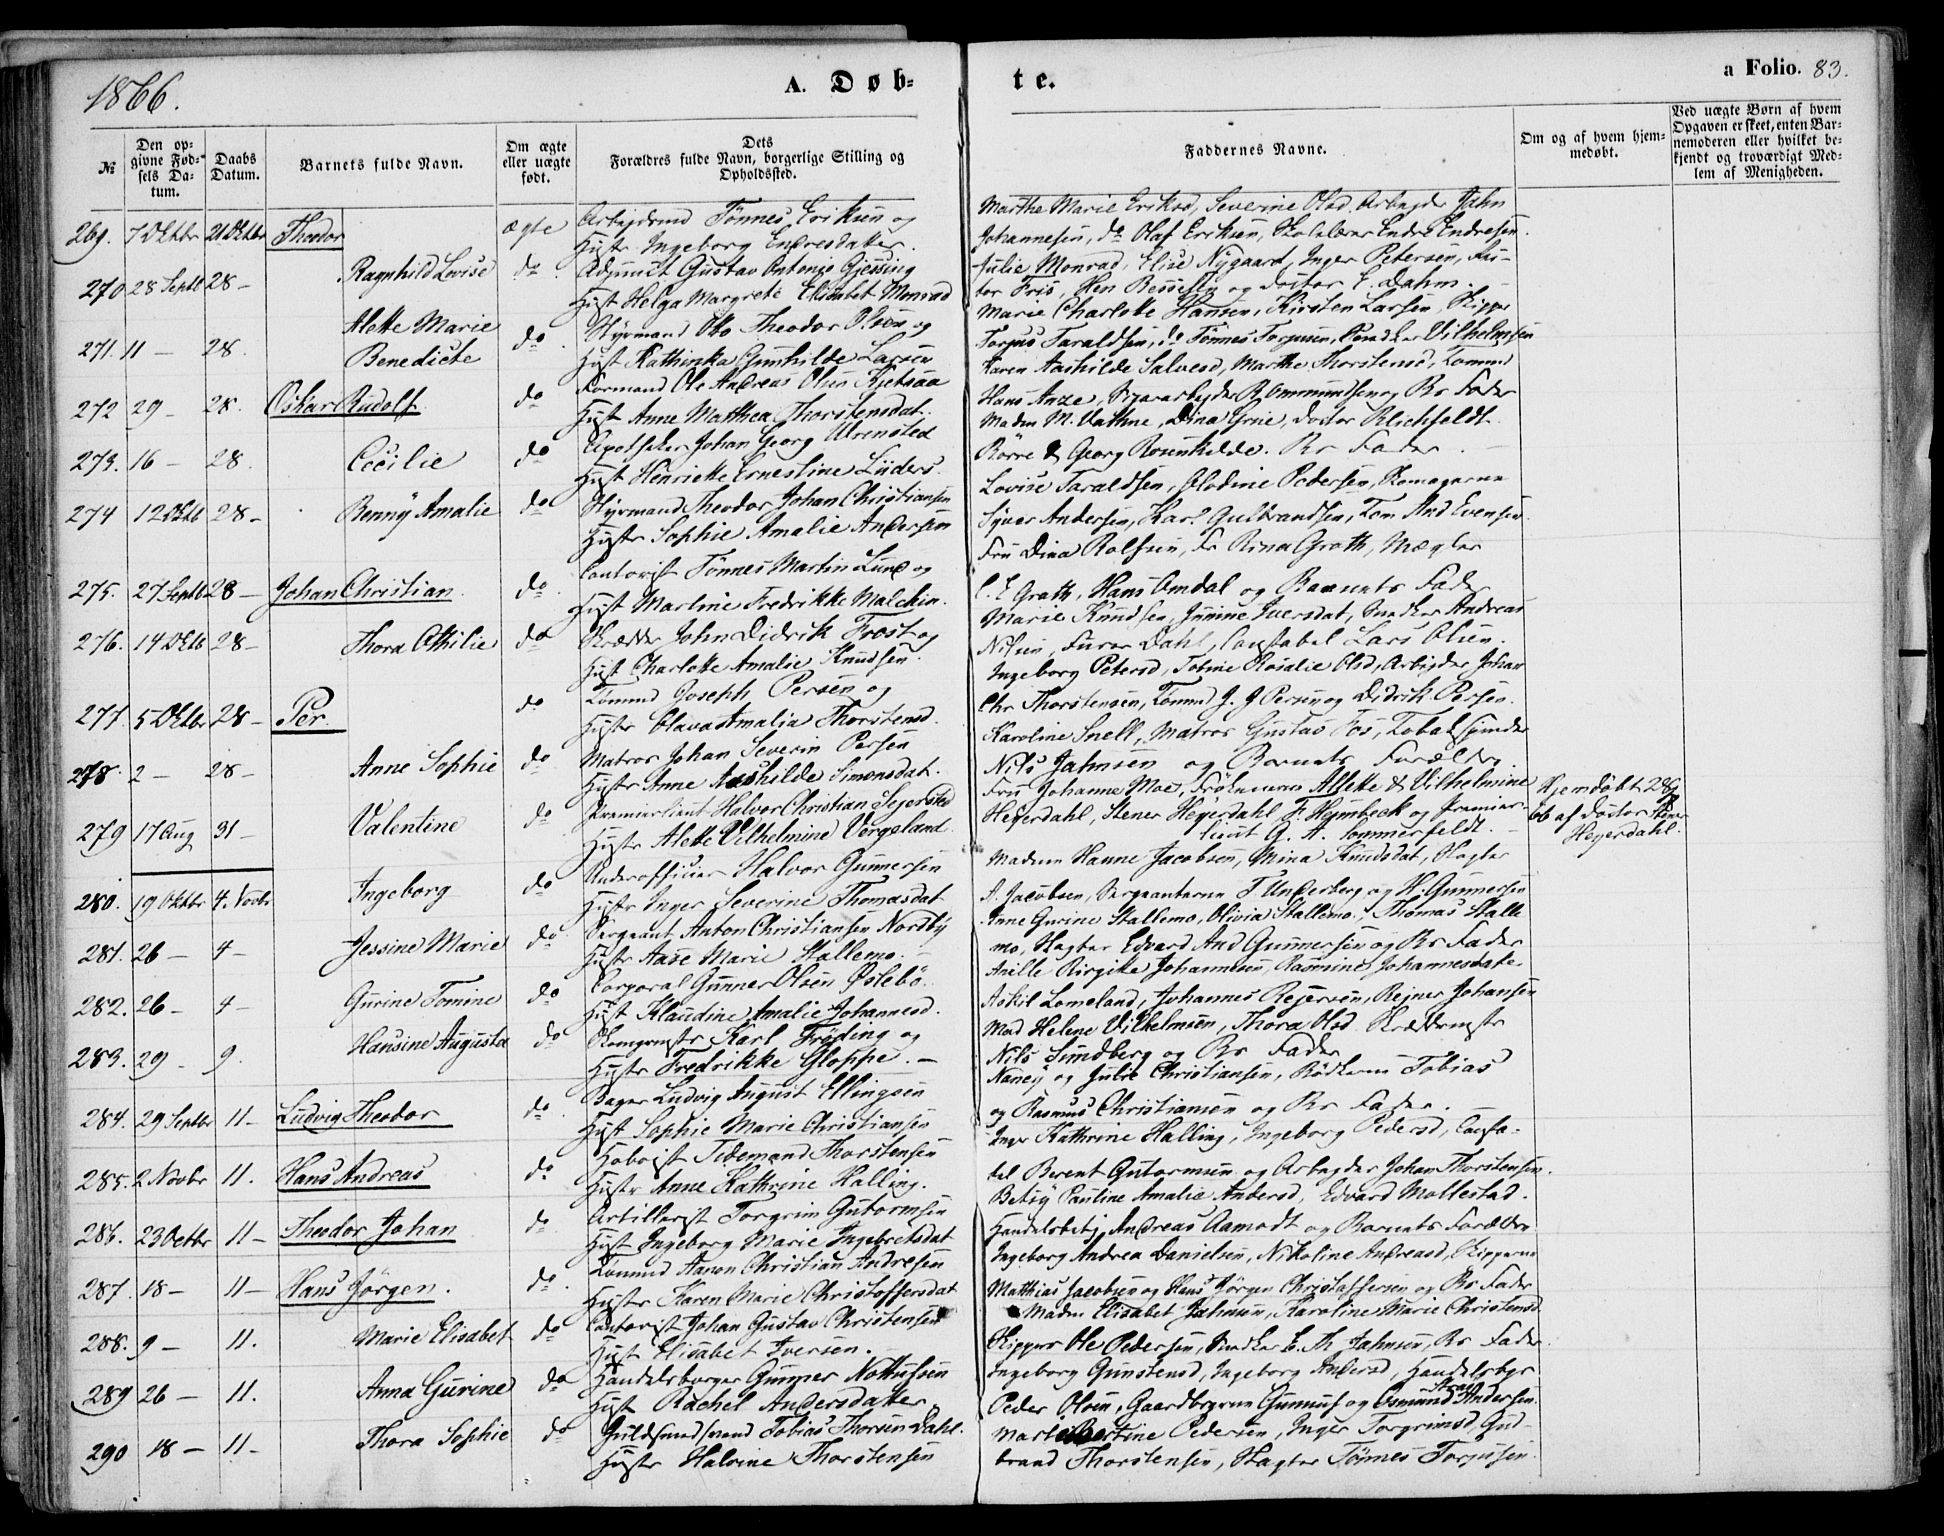 1866.
A. Døb-
te.
a Folio. 83.
№
Den op-
givne Fød-
sels Da-
tum.
Daabs
Datum.
Barnets fulde Navn.
Om ægte
eller uægte
født.
Dets
Forældres fulde Navn, borgerlige Stilling og
Opholdssted.
Faddernes Navne.
Om og af hvem hjem-
medøbt.
Ved uægte Børn af hvem
Opgaven er skeet, enten Bar-
nemoderen eller hvilket be-
kjendt og troværdigt Med-
lem af Menigheden.
269. 7 Oktbr 21 Oktbr Theodor ægte Arbejdsmd Tønnes Eriksen og
Hust Ingeborg Endresdatter.
Marthe Marie Eriksd, Severine Olsd. Arbejder John
Johannesen, do Olaf Eriksen, Skolelærer Endre Endresen.
270 28 Septb 28 – Ragnhild Lovise do Adjunct Gustav Antonio Gjessing
Hust Helga Margrete Elisabet Monrad
Julie Monrad, Elise Nygaard, Inger Petersen,
Friis, Hen Bessesen og Doctor E. Dahm.
271. 11 – 28. Alette Marie
Benedicte do Styrmand Theodor Olsen og
Hust Kathinka Gunhilde Larsen
Marie Charlotte Hansen, Kirsten Larsen, Skipper
Torjus Taraldsen, do Tønnes Torjusen, Vilhelmsen
272 29 – 28. Oskar Rudolf do Formand Ole Andreas Olsen Kjetsaa
Hust Anne Matthea Thorstensdat.
Karen Aashilde Salvesd, Marthe Thorstensd, Tømmd
Hans Aase, og Bs Fader
273. 16 – 28. Cecilie do Apotheker Johan Georg Ulrensted
Hust Henriette Ernestine Lüders.
Madm M. Vathne, Dina Grie, Doctor Blichfeldt.
Børre & Georg Rosenkilde. Bs Fader.
274 12 Oktb 28 – Benny Amalie do Styrmand Theodor Johan Christiansen
Hustr Sophie Amalie Andersen
Lovise Taraldsen, Olodine Pedersen, Skomagerne
Syver Andersen, Karl Gulbrandsen, Tom And Evensen.
275. 27 Septb 28 – Johan Christian do Contorist Tønnes Martin Lund og
Hust Martine Fredrikke Malchin.
Fru Dina Rolfsen, Fr Rina Groth, Mægler
C. E Groth, Hans Omdal og Barnets Fader
276. 14 Oktb 28 – Thora Othilie do Skrædder John Didrik Frost og
Hust Charlotte Amalie Knudsen.
Marie Knudsen, Junine Iversdat, Snedker Andreas
Nilsen, Furer Dahl, Constabel Lars Olsen.
277. 5 Oktbr 28 – Per do Tømmd Joseph Persen og
Hustr Olava Amalia Thorstensd.
Ingeborg Petersd, Tobine Rosalie Olsd, Arbejder Johan
Chr Thorstensen, Tømmd J. J Persen og Didrik Persen.
278. 2 – 28 – Anne Sophie do Matros Johan Severin Persen
Hustr Anne Aashilde Simonsdat.
Karoline Snell, Matros Gustav Fos, Tobakspinder
Nils Jahnsen og Barnets Forældre.
279 17 Aug 31 – Valentine do Premierlieut Halvor Christian Sejersted
Hustr Alette Vilhelmine Vergeland.
Fru Johanne Moe, Frøknerne Alette & Vilhelmine
Heyerdahl, Stener Heyerdahl F. Heimbeck og Premier-
lieut G. A. Sommerfeldt. –
Hjemdøbt 28/9
66 af Doctor Stener
Heyerdahl.
280. 19 Oktbr 4. Novbr Ingeborg do Underofficer Halvor Gunnersen
Hustr Inger Severine Thomasdat
Madm Hanne Jacobsen, Mina Knudsdat, Slagter
A. Jacobsen, Sergeanterne T Underberg og H. Gunnersen
281. 26 – 4 – Jessine Marie do Sergeant Anton Christiansen Nordby
Hustr Aase Marie Stallemo. –
Anne Gurine Stallemo, Olivia Stallemo, Thomas Stalle
mo, Slagter Edvard And Gunnersen og Bs Fader
282. 26 – 4 – Gurine Tomine do Corporal Gunner Olsen Øslebø.
Hust Klaudine Amalie Johannesd.
Anille Birgitte Johannesen, Rasmine Johannesdatr.
Askil Lomeland, Johannes Rejersen, Rejner Johansen
283. 29 – 9. Hansine Augusta do Karl Frøding og
Hustr Fredrikke Gloppe. –
Mad Helene Vilhelmsen, Thora Olsd Skræddermstr
Nils Sundberg og Bs Fader
284. 29 Septbr 11 – Ludvig Theodor do Bager Ludvig August Ellingsen
Hust Sophie Marie Christiansen
Nancy og Julie Christiansen, Bødkerne Tobias
og Rasmus Christiansen og Bs Fader.
285. 2 Novbr 11. Hans Andreas do Hoboist Tidemand Thorstensen
Hustr Anne Kathrine Halling.
Inger Kathrine Halling, Ingeborg Pedersd, Consta-
bel Berent Gutormsen og Arbejder Johan Thorstensen.
286. 23 Octbr 11 – Theodor Johan do Artillerist Torgrim Gutormsen
Hust Ingeborg Marie Ingebretsdat
Betsy Pauline Amalie Andersd, Edvard Mollestad.
Handelsbetj. Andreas Aamodt og Barnets Forældre
287. 18 – 11 – Hans Jörgen. do Tømmd Aanon Christian Andresen
Hustr Karen Marie Christoffersdat
Ingeborg Andrea Danielsen, Nikoline Andreasd, Skipperne
Matthias Jacobsen og Hans Jørgen Christoffersen og Bs Fader
288. 9 – 11. Marie Elisabet do Contorist Johan Gustav Christensen
Hust Elisabet Iversen. –
Madm Elisabet Jahnsen, Karoline Marie Christensd
Skipper Ole Pedersen, Snedker C. Th Jahnsen, Bs Fader
289 26 – 11. Anna Gurine do Handelsborger Gunner Nottulsen
Hust Rachel Andersdatter.
Ingeborg Gunstensd, Ingeborg Andersd, Handelsbgr
Peder Olsen, Gaardbrugerne Gunnuf og Osmund Aras Andersen
290 18 – 11 – Thora Sophie do Guldsmedsvend Tobias Thorsen Dahl.
Hustr Halvine Thorstensen
Marie Bertine Pedersen, Inger Torgrimsd, Gud-
brand Thorstensen, Slagter Tønnes Torjusen.